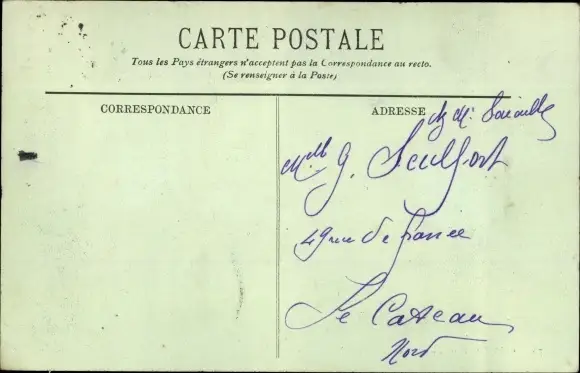 CARTE POSTALE
Tous les Pays étrangers n'acceptent pas la Correspondance au recto.
(Se renseigner à la Poste)
CORRESPONDANCE
ADRESSE
G.
49 rue de france
Le Cateau
Nord